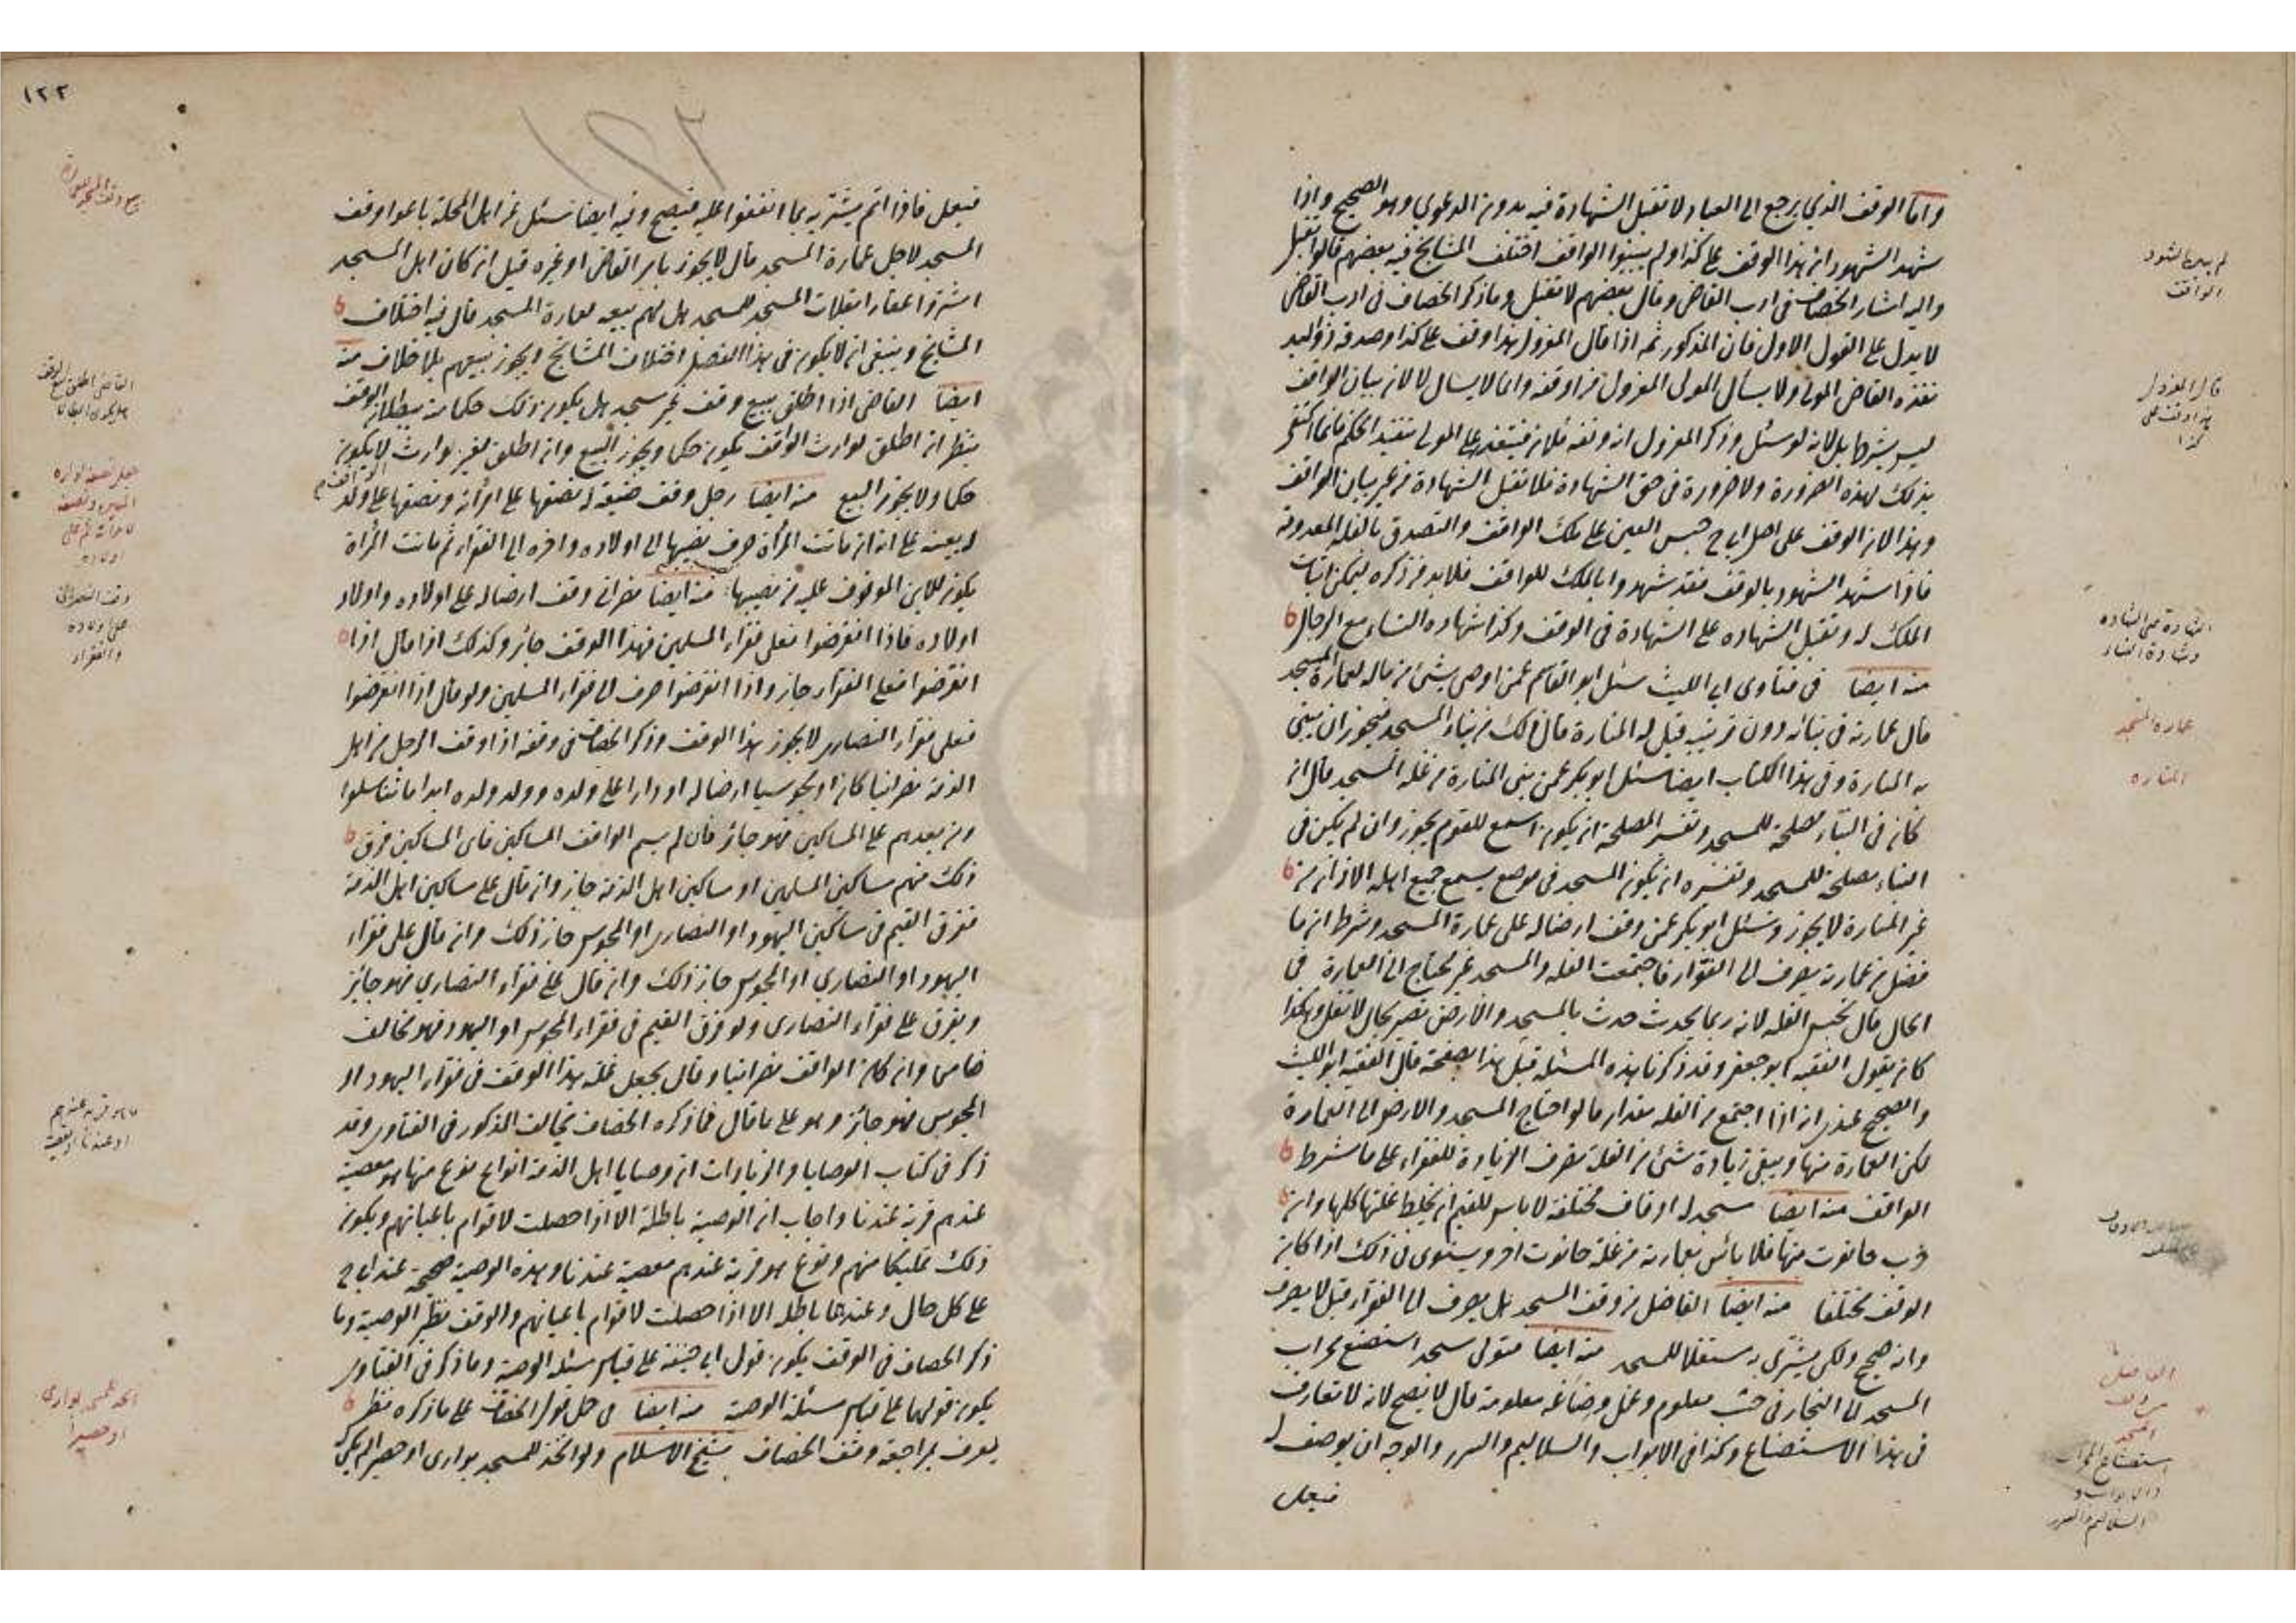 واما الوقف الذي يرجع الى العباد لا تقبل الشهادة فيه بدون الدعوي وهو الصحيح واذا
شهد الشهود ان هذا الوقف على كذا ولم يبينوا الواقف اختلف المشايخ فيه بعضهم قالوا تقبل
واليه اشار الخصاف في ادب القاضي وقال بعضهم لا تقبل وما ذكر الخصاف في ادب القاضي
لا يدل على القول الاول فان المذكور ثم اذا قال المعزول هذا وقف على كذا وصدقه ذو اليد
نفذه القاضي المولى ولا يسأل المولى المعزول من اوقفه وانما لا يسال لا لان بيان الواقف
ليس بشرط بل لانه لو سئل وذكر المعزول انه وقفه فلان فيتعذر على المولى تنفيذ الحكم فانما اكتفى
بذلك لهذه الضرورة ولا ضرورة في حق الشهادة فلا تقبل الشهادة من غير بيان الواقف
وهذا لان الوقف على اصل ابي ح حبس العين على ملك الواقف والتصدق بالغلة المعدومة
فاذا شهد الشهود بالوقف فقد شهدوا بالملك للواقف فلا بد من ذكره ليمكن اثبات
الملك له وتقبل الشهاده على الشهادة في الوقف وكذا شهاده النساء مع الرجال
منه ايضا في فتاوى ابي الليث سئل ابو القاسم عمن اوصى بشئ من ماله لعمارة المسجد
قال عمارته في بنائه دون تزيينه قيل له المنارة قال ذلك من بناء المسجد فيجوز ان يبنى
به المنارة وفي هذا الكتاب ايضا سئل ابو بكر عمن بنى المنارة من غلة المسجد قال ان
كان في البناء مصلحة للمسجد وتفسير المصلحة ان يكون اسمع للقوم يجوز وان لم يكن في
البناء مصلحة للمسجد وتفسيره ان يكون المسجد في موضع يسمع جميع اهله الاذان من
غير المنارة لا يجوز وسئل ابو بكر عمن وقف ارضا له على عمارة المسجد وشرط ان ما
فضل من عمارته يصرف الى الفقراء فاجتمعت الغلة والمسجد غير محتاج الى العمارة في
الحال قال تحبس الغلة لانه ربما يحدث حدث بالمسجد والارض تصير بحال لا تغل وهكذا
كان يقول الفقيه ابو جعفر وقد ذكرنا هذه المسئلة قبل هذا بصفحة قال الفقيه ابو الليث
والصحيح عندي انه اذا اجتمع من الغلة مقدار ما لو احتاج المسجد والارض الى العمارة
يمكن العمارة منها ويبقى زيادة شئ من الغلة تصرف الزيادة للفقراء على ما شرط
الواقف منه ايضا مسجد له اوقاف مختلفة لا باس للقيم ان يخلط غلتها كلها وان
خرب حانوت منها فلا باس بعمارته من غلة حانوت اخر ويستوى في ذلك اذا كان
الوقف مختلفا منه ايضا الفاضل من وقف المسجد هل يصرف الى الفقراء قيل لا يصرف
وانه صحيح ولكن يشترى به مستغلا للمسجد منه ايضا متولى مسجد استصنع محراب
المسجد الى النجار في خشب معلوم وعمل وصناعة معلومة قال لا يصح لانه لا تعارف
في هذا الاستصناع وكذا في الابواب والسلاليم والسرر والوجه ان يوصف له
فيعمل
لم يبين الشهود
الواقف
قال المعزول
هذا وقف على
كذا
الشهادة على الشهاده
وشهادة النساء
عمارة المسجد
المناره
الفاضل
من وقف
المسجد
استصناع المحراب
والابواب و
السلاليم والسرر
١٢٢
فيعمل فاذا اتم يشتريه بما اتفقوا عليه فيصح وفيه ايضا سئل عن اهل المحلة باعوا وقف
المسجد لاجل عمارة المسجد قال لا يجوز بامر القاضي او غيره قيل ان كان اهل المسجد
اشتروا عقارا بغلات المسجد للمسجد هل لهم بيعه لعمارة المسجد قال فيه اختلاف
المشايخ وينبغي ان لا يكون في هذا الفصل اختلاف المشايخ ويجوز بيعهم بلا خلاف منه
ايضا القاضي اذا اطلق بيع وقف غير مسجد هل يكون ذلك حكما منه ببطلان الوقف
ينظر ان اطلق لوارث الواقف يكون حكما ويجوز البيع وان اطلق لغير وارث لا يكون
حكما ولا يجوز البيع منه ايضا رجل وقف ضيعة له نصفها على امرأته ونصفها على ولد
له بعينه على انه ان ماتت المرأة صرف نصيبها الى اولاده واخره الى الفقراء ثم ماتت المرأة
يكون للابن الموقوف عليه من نصيبها منه ايضا نصراني وقف ارضا له على اولاده واولاد
اولاده فاذا انقرضوا فعلى فقراء المسلمين فهذا الوقف جائز وكذلك اذا قال اذا
انقرضوا فعلى الفقراء جاز واذا انقرضوا صرف الى فقراء المسلمين ولو قال اذا انقرضوا
فعلى فقراء النصارى لا يجوز هذا الوقف وذكر الخصاف في وقفه اذا وقف الرجل من اهل
الذمة نصرانيا كان او مجوسيا ارضا له او دارا على ولده وولد ولده ابدا ما تناسلوا
ومن بعدهم على المساكين فهو جائز فان لم يسم الواقف المساكين فاى المساكين فرق
ذلك منهم مساكين المسلمين او مساكين اهل الذمة جاز وان قال على مساكين اهل الذمة
ففرق القيم في مساكين اليهود او النصارى او المجوس جاز ذلك وان قال على فقراء
اليهود او النصارى او المجوس جاز ذلك وان قال على فقراء النصارى فهو جائز
ويفرق على فقراء النصارى ولو فرق القيم في فقراء المجوس او اليهود فهو مخالف
ضامن وان كان الواقف نصرانيا وقال يجعل غلة هذا الوقف في فقراء اليهود او
المجوس فهو جائز وهو على ما قال فما ذكره الخصاف يخالف المذكور في الفتاوى وقد
ذكر في كتاب الوصايا والزيادات ان وصايا اهل الذمة انواع نوع منها هو معصية
عندهم قربة عندنا واجاب ان الوصية باطلة الا اذا حصلت لاقوام باعيانهم ويكون
ذلك تمليكا منهم ونوع هو قربة عندهم معصية عندنا وهذه الوصية صحيحة عند ابي ح
على كل حال وعندهما باطلة الا اذا حصلت لاقوام باعيانهم والوقف نظير الوصية وما
ذكر الخصاف في الوقف يكون قول ابي حنيفة على قياس مسئلة الوصية وما ذكر في الفتاوى
يكون قولهما على قياس مسئلة الوصية منه ايضا في حل قول الخصاف على ما ذكره نظر
يعرف بمراجعة وقف الخصاف شيخ الاسلام ولو اتخذ للمسجد بوارى او حصيرا
القاضي اطلق بيع الوقف
وقف النصراني
على اولاده
والفقراء
ما هو قربة عندهم
او عندنا
اتخذ للمسجد بوارى
او حصيرا